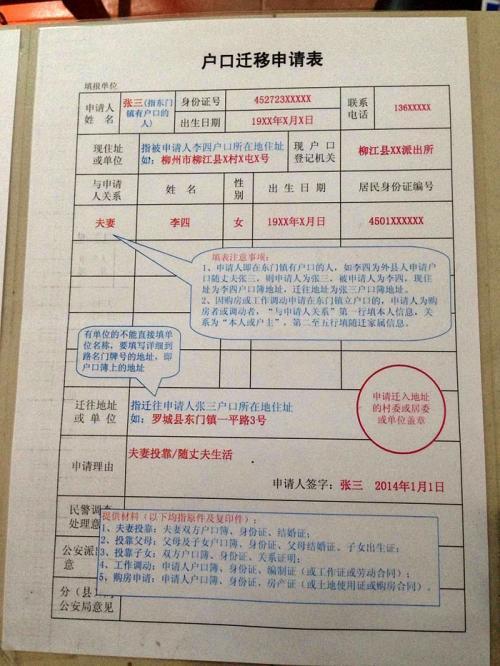 户口迁移申请表
填报单位
申请人姓名 张三(指东门镇有户口的人) 身份证号 452723XXXXX 联系电话 136XXXXX
出生日期 19XX年X月X日
现住址或单位 指被申请人李四户口所在地住址
如：柳州市柳江县X村X屯X号 现户口登记机关 柳江县XX派出所
与申请人关系 姓名 性别 出生日期 居民身份证编号
夫妻 李四 女 19XX年X月X日 4501XXXXXX
填表注意事项：
1、申请人即在东门镇有户口的人，如李四为外县人申请户
口随丈夫张三，则申请人为张三，被申请人为李四，现住
址为李四户口簿地址，迁往地址为张三户口簿地址。
2、因购房或工作调动申请在东门镇立户口的，申请人为购
房者或调动者，“与申请人关系”第一行填本人信息，关
系为“本人或户主”，第二至五行填随迁家属信息。
有单位的不能直接填单
位名称，要填写详细到
路名门牌号的地址，即
户口簿上的地址
迁往地址或单位 指迁往申请人张三户口所在地住址
如：罗城县东门镇一平路3号
申请迁入地址
的村委或居委
或单位盖章
申请理由 夫妻投靠/随丈夫生活
申请人签字：张三 2014年1月1日
民警调查
处理意
提供材料（以下均指原件及复印件）：
1、夫妻投靠：夫妻双方户口簿、身份证、结婚证；
2、投靠父母：父母及子女户口簿、身份证、父母结婚证、子女出生证；
3、投靠子女：双方户口簿、身份证、关系证明；
4、工作调动：申请人户口簿、身份证、编制证（或工作证或劳动合同）；
5、购房申请：申请人户口簿、身份证、房产证（或土地使用证或购房合同）。
公安派
意
分（县
公安局意见